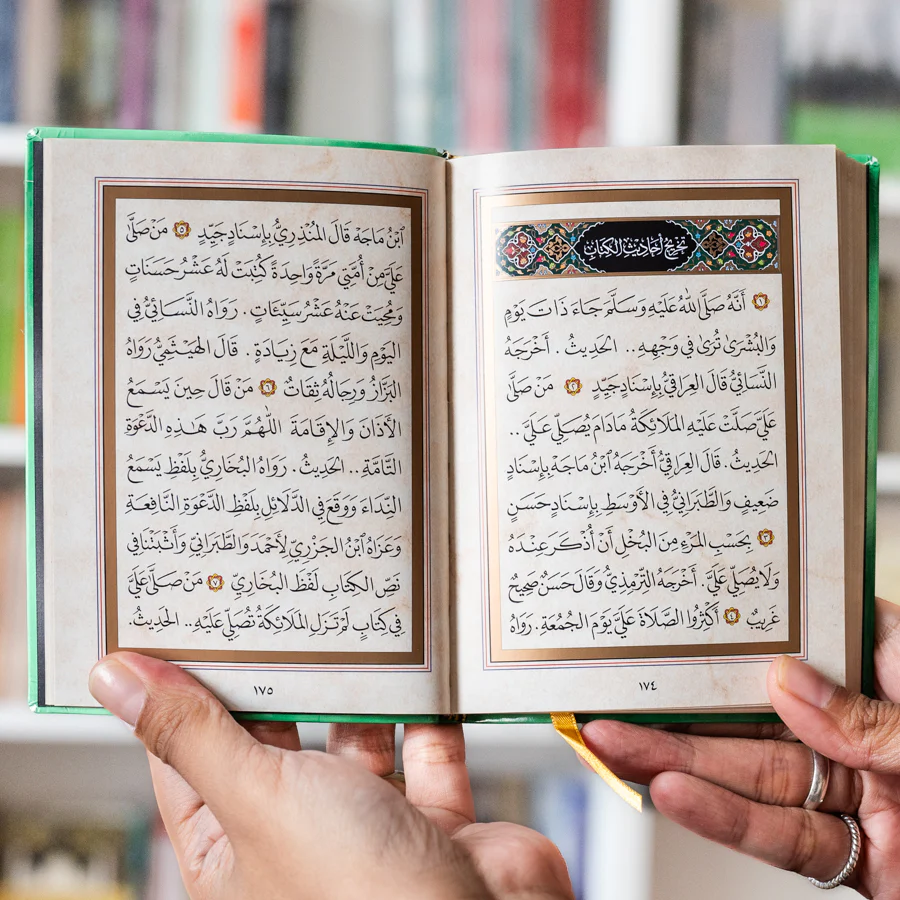 تخريج أحاديث الكتاب
١ أَنَّهُ صَلَّى اللهُ عَلَيْهِ وَسَلَّمَ جَاءَ ذَاتَ يَوْمٍ
وَالبُشْرَى تُرَى فِي وَجْهِهِ.. الحَدِيثُ. أَخْرَجَهُ
النَّسَائِيُّ قَالَ العِرَاقِيُّ بِإِسْنَادٍ جَيِّدٍ ٢ مَنْ صَلَّى
عَلَيَّ صَلَّتْ عَلَيْهِ المَلَائِكَةُ مَادَامَ يُصَلِّي عَلَيَّ..
الحَدِيثُ. قَالَ العِرَاقِيُّ أَخْرَجَهُ ابْنُ مَاجَهْ بِإِسْنَادٍ
ضَعِيفٍ وَالطَّبَرَانِيُّ فِي الأَوْسَطِ بِإِسْنَادٍ حَسَنٍ
٣ بِحَسْبِ المَرْءِ مِنَ البُخْلِ أَنْ أُذْكَرَ عِنْدَهُ
وَلَا يُصَلِّيَ عَلَيَّ. أَخْرَجَهُ التِّرْمِذِيُّ وَقَالَ حَسَنٌ صَحِيحٌ
غَرِيبٌ ٤ أَكْثِرُوا الصَّلَاةَ عَلَيَّ يَوْمَ الجُمُعَةِ. رَوَاهُ
١٧٤
ابْنُ مَاجَهْ قَالَ المُنْذِرِيُّ بِإِسْنَادٍ جَيِّدٍ ٥ مَنْ صَلَّى
عَلَيَّ مِنْ أُمَّتِي مَرَّةً وَاحِدَةً كُتِبَتْ لَهُ عَشْرُ حَسَنَاتٍ
وَمُحِيَتْ عَنْهُ عَشْرُ سَيِّئَاتٍ. رَوَاهُ النَّسَائِيُّ فِي
اليَوْمِ وَاللَّيْلَةِ مَعَ زِيَادَةٍ. قَالَ الهَيْثَمِيُّ رَوَاهُ
البَزَّازُ وَرِجَالُهُ ثِقَاتٌ ٦ مَنْ قَالَ حِينَ يَسْمَعُ
الأَذَانَ وَالإِقَامَةَ اللَّهُمَّ رَبَّ هَذِهِ الدَّعْوَةِ
التَّامَّةِ.. الحَدِيثُ. رَوَاهُ البُخَارِيُّ بِلَفْظِ يَسْمَعُ
النِّدَاءَ وَوَقَعَ فِي الدَّلَائِلِ بِلَفْظِ الدَّعْوَةِ النَّافِعَةِ
وَعَزَاهُ ابْنُ الجَزْرِيِّ لِأَحْمَدَ وَالطَّبَرَانِيِّ وَأَثْبَتْنَا فِي
نَصِّ الكِتَابِ لَفْظَ البُخَارِيِّ ٧ مَنْ صَلَّى عَلَيَّ
فِي كِتَابٍ لَمْ تَزَلِ المَلَائِكَةُ تُصَلِّي عَلَيْهِ.. الحَدِيثُ.
١٧٥